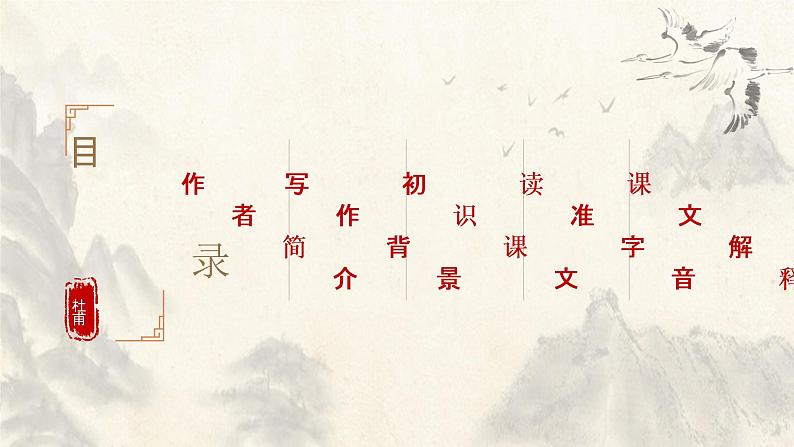 目录
杜甫
作者简介
写作背景
初识课文
读准字音
课文解释